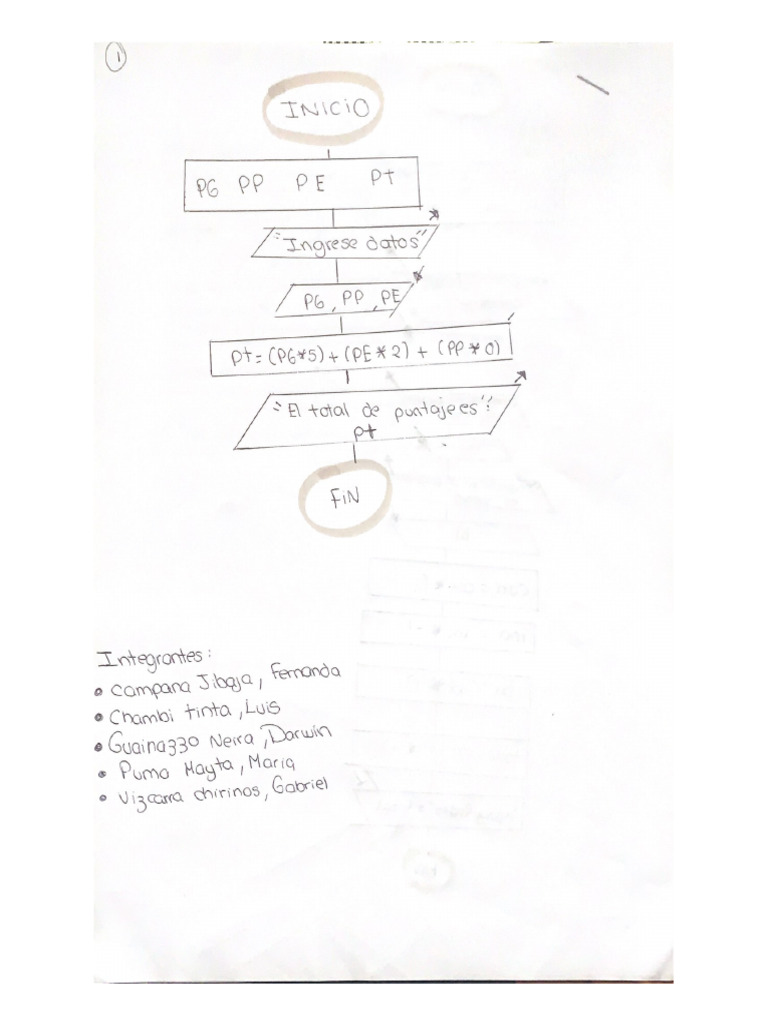 1
INICIO
PG PP PE Pt
"Ingrese datos"
PG, PP, PE
Pt = (PG*5) + (PE*2) + (PP*0)
"El total de puntaje es":
pt
FIN
Integrantes:
• Campana Jibaja, Fernanda
• Chambi tinta, Luis
• Guainazzo Neira, Darwin
• Puma Mayta, Maria
• Vizcarra chirinos, Gabriel